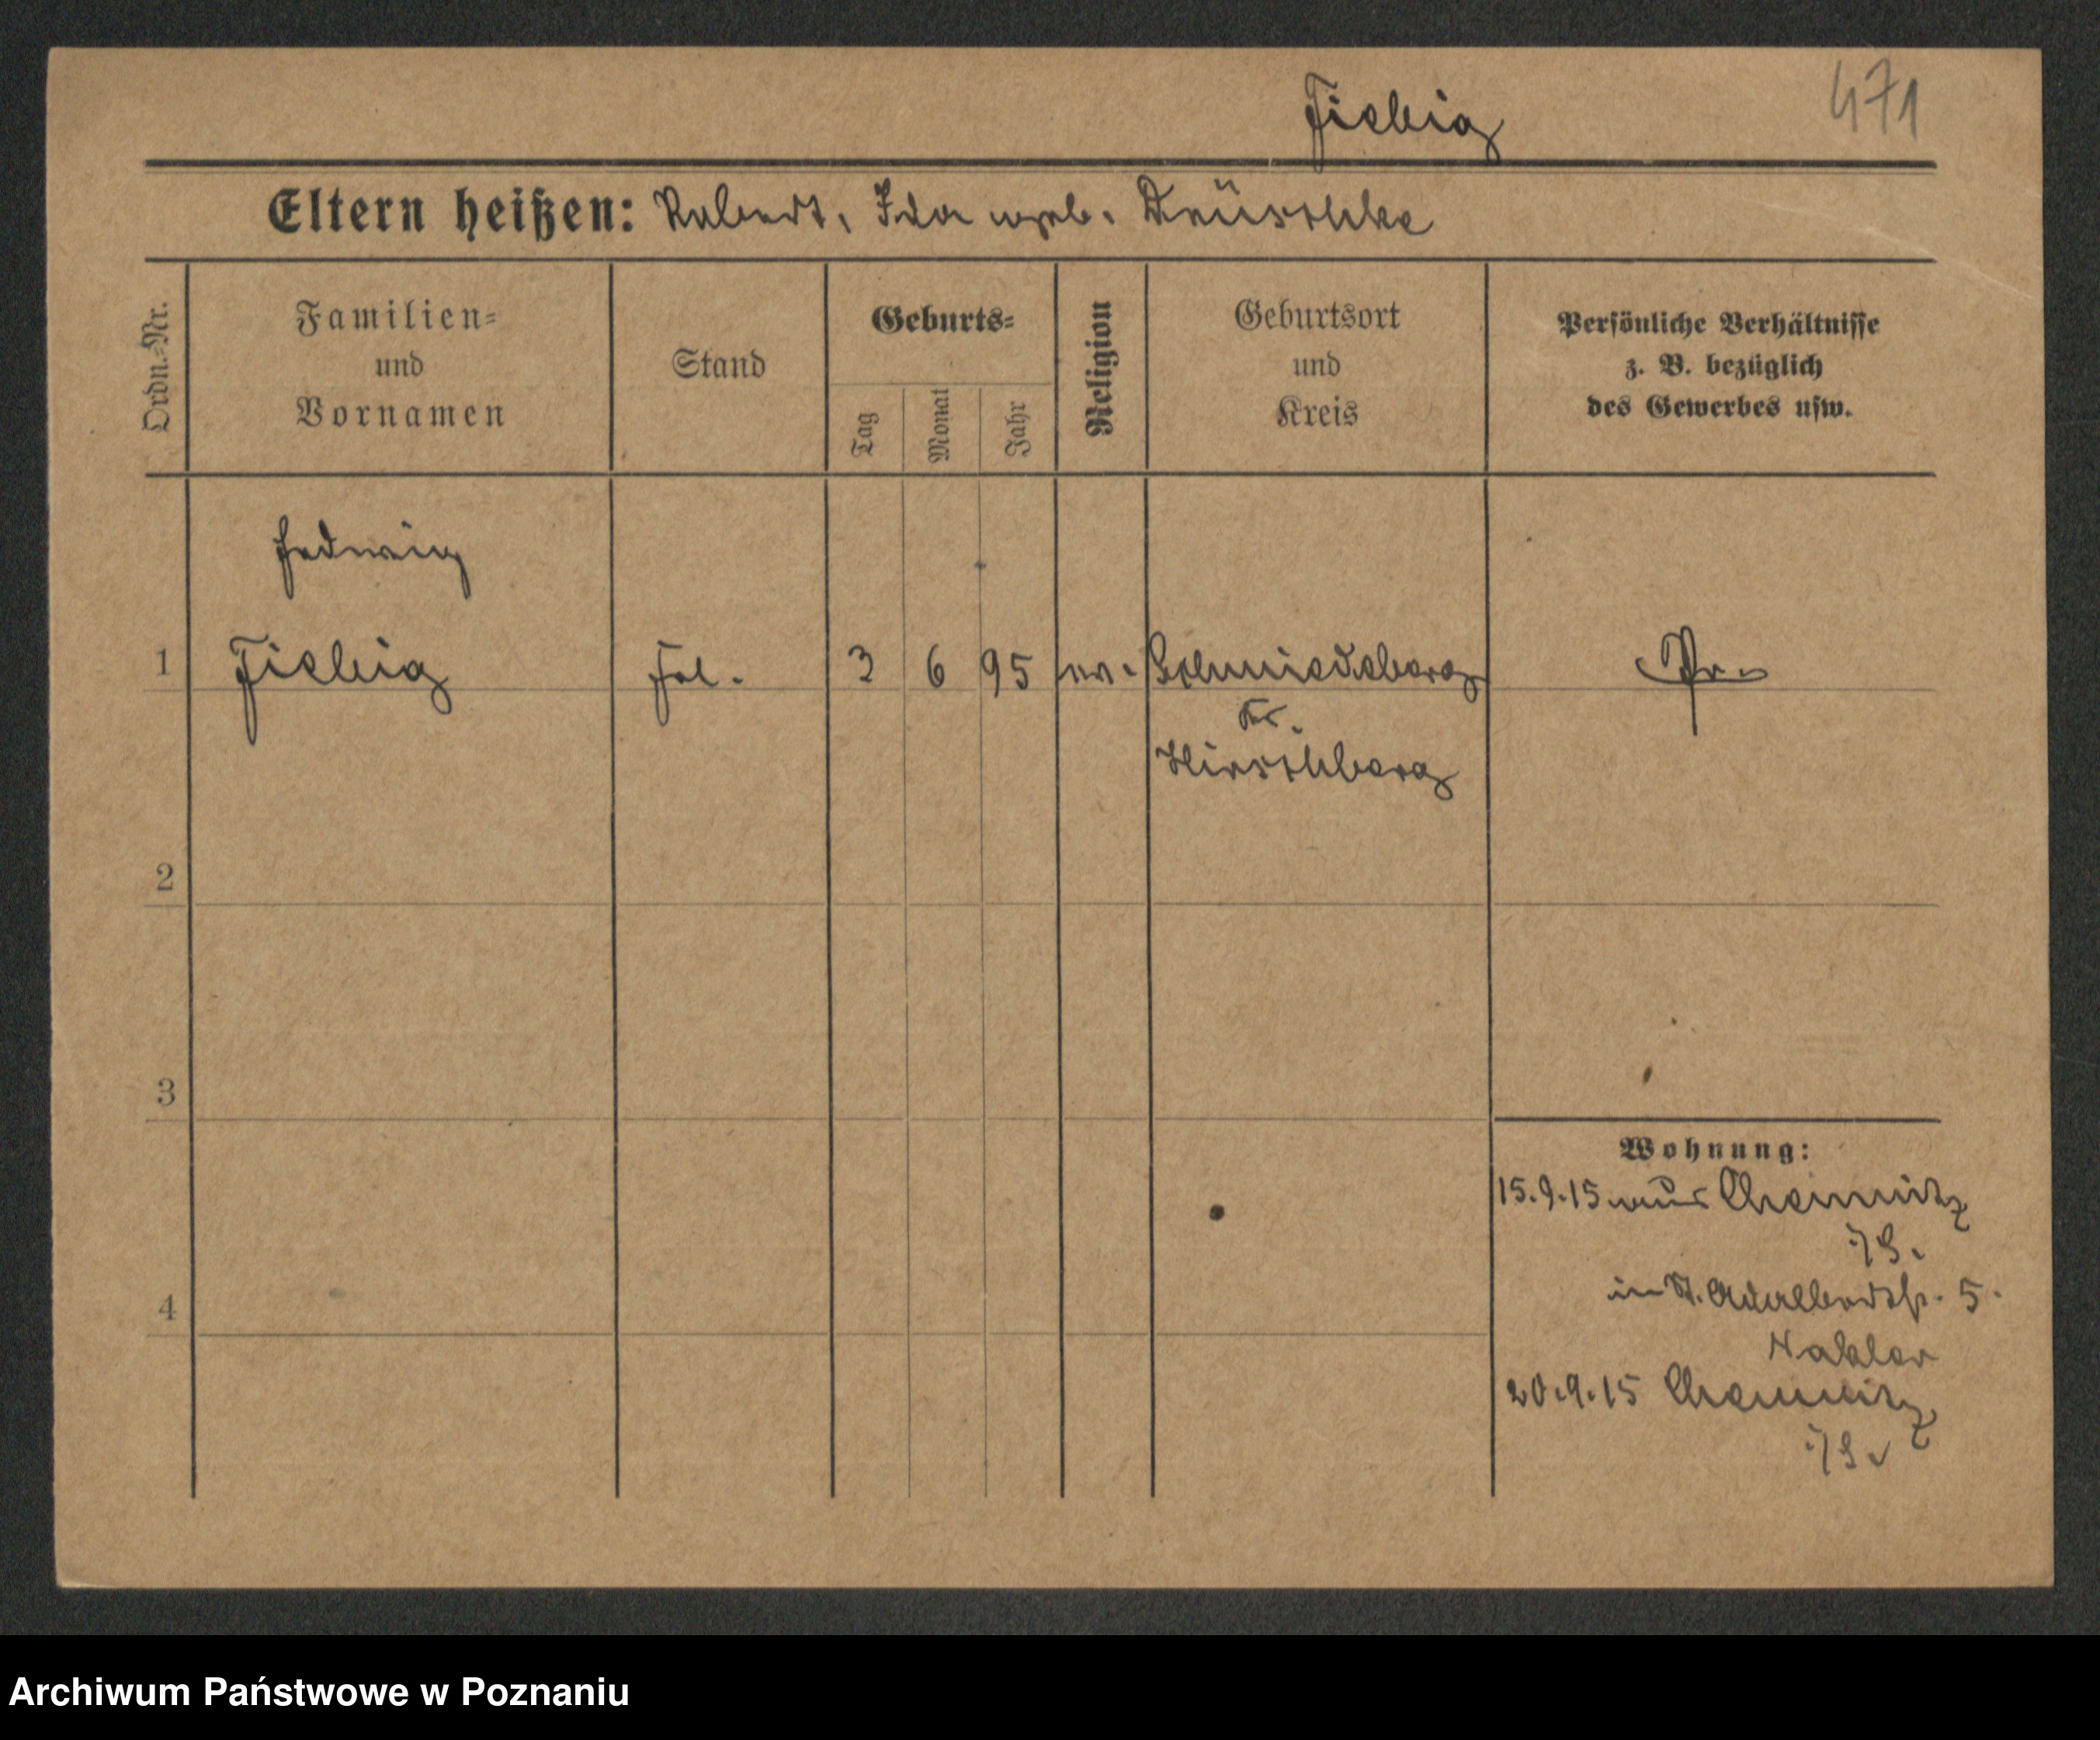 Fiebig
471
Eltern heißen: Robert, Ida geb. Krüschke
Ordn.-Nr.
Familien-
und
Vornamen
Stand
Geburts-
Tag
Monat
Jahr
Religion
Geburtsort
und
Kreis
Persönliche Verhältnisse
z. B. bezüglich
des Gewerbes usw.
Hedwig
1 Fiebig Frl. 3 6 95 ev. Schmiedeberg Pr.
Kr.
Hirschberg
2
3
4
Wohnung:
15.9.15 aus Chemnitz
i/S.
in St. Adalbertstr. 5.
20.9.15 Chemnitz
i/S.
Archiwum Państwowe w Poznaniu